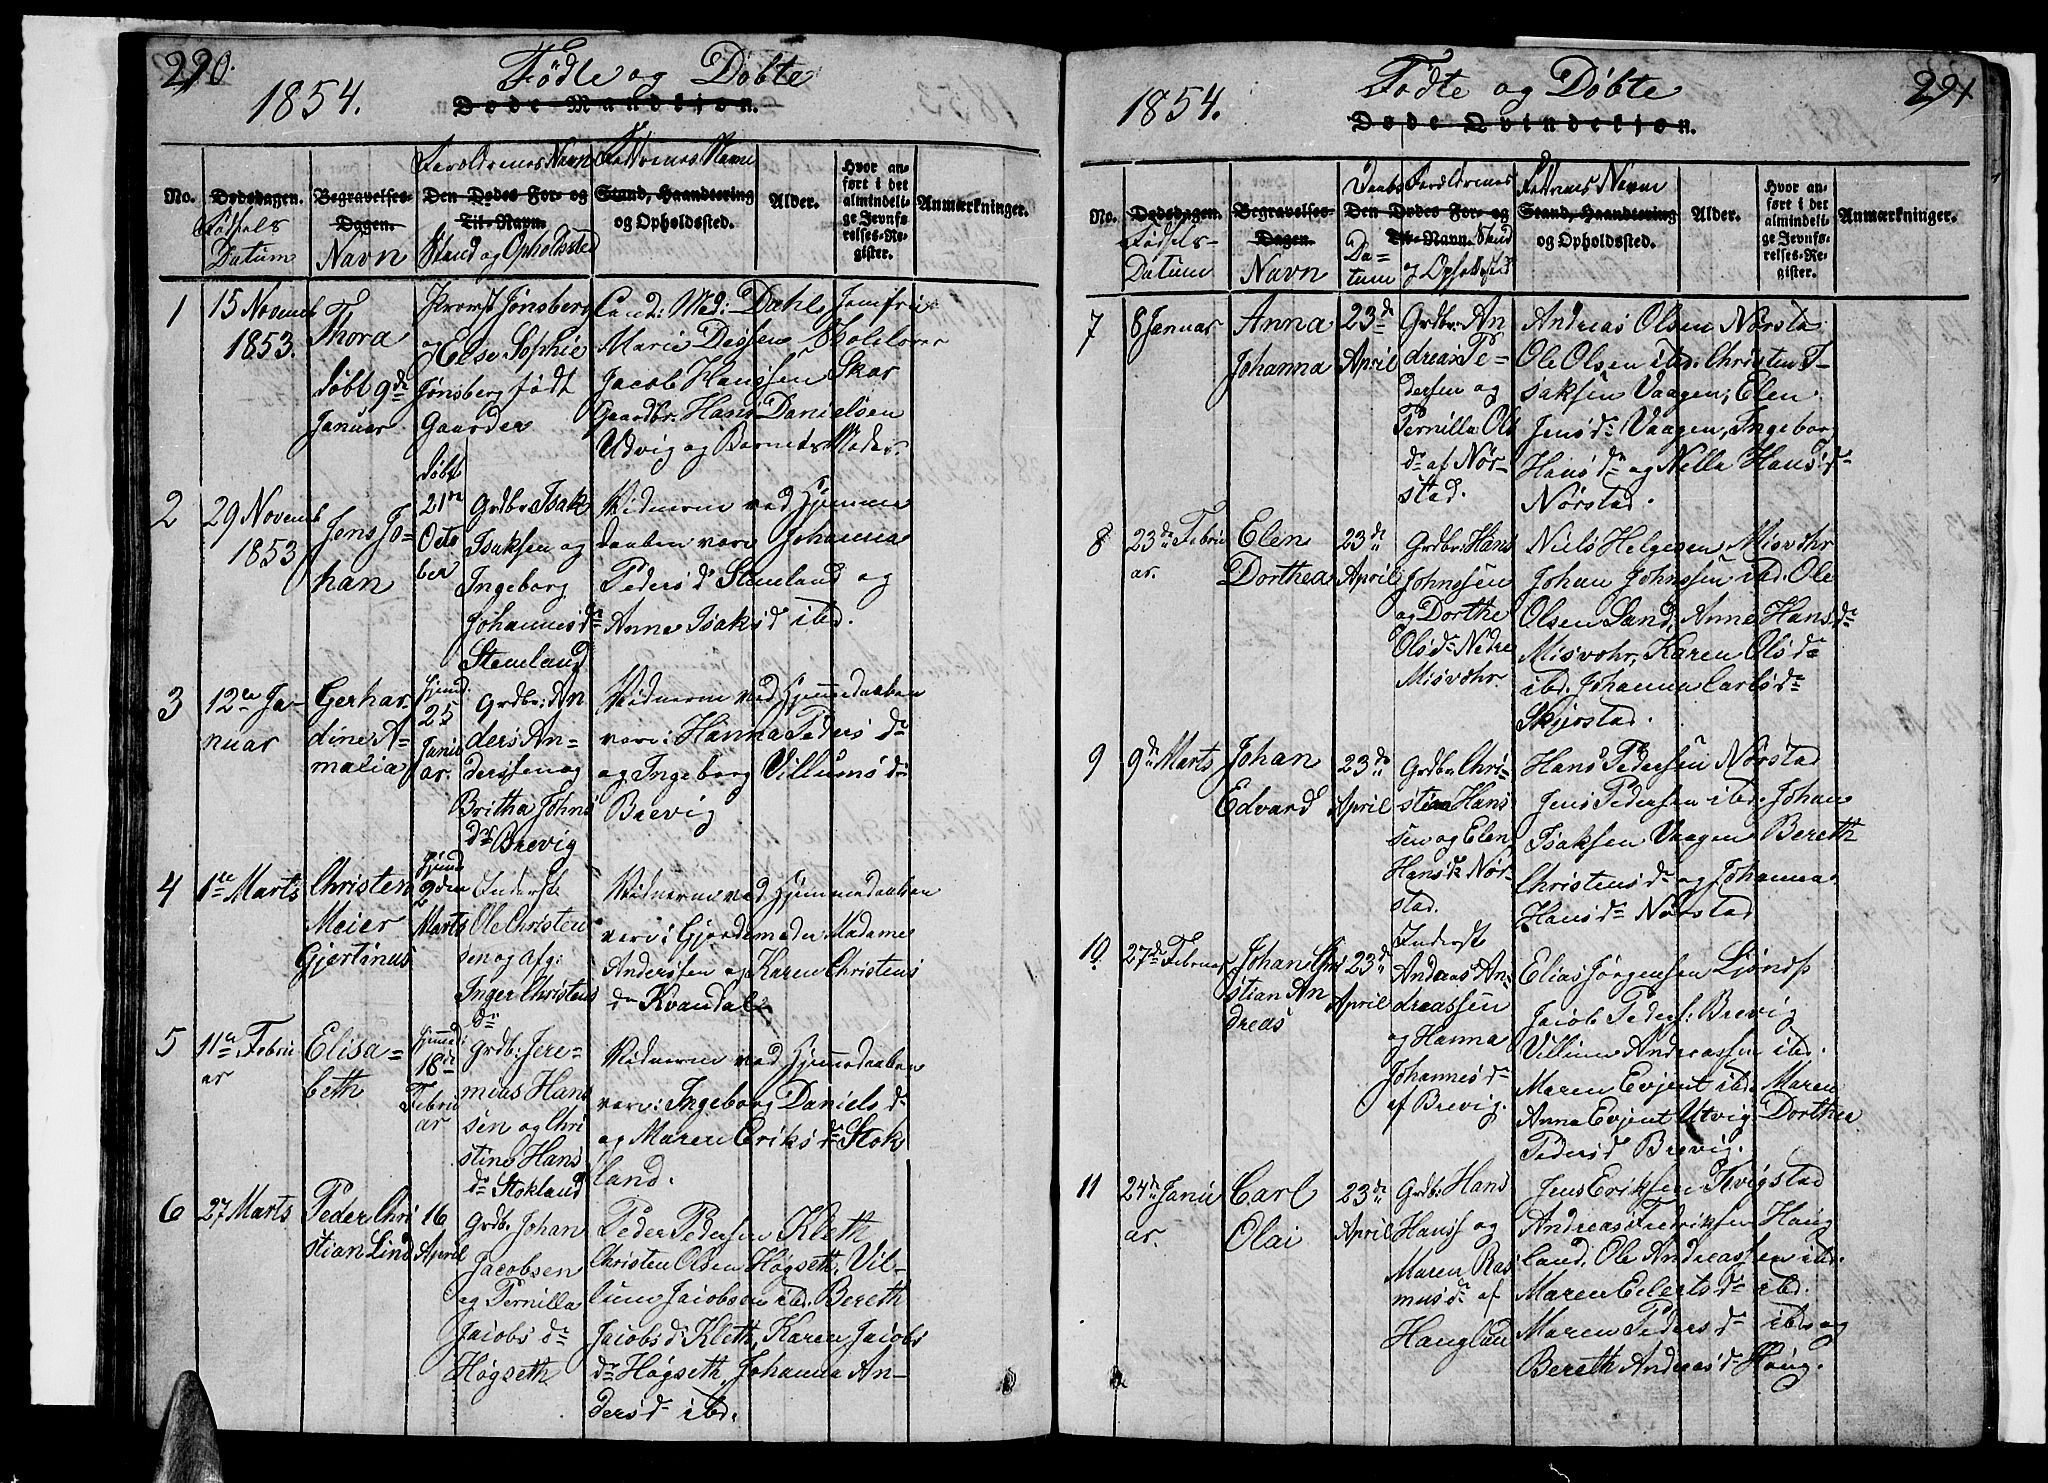 290.
1854.
Födte og Döbte
Døde Mandkjøn.
No.
Dødsdagen.
Födsels
Datum
Begravelses-
Dagen.
Navn
Forældrenes Navn
Den Dødes For- og
Til-Navn.
Stand og Opholdssted
Faddrenes Navn
Stand, Haandtering
og Opholdssted.
Alder.
Hvor an-
ført i det
almindeli-
ge Jevnfø-
relses-Re-
gister.
Anmærkninger.
1
15 Novemb
1853.
Thora
döbt 9de
Januar
Provst Jönsberg
og
Else Sophie
Jönsberg födt
Gaarder
Cand: Med: Dahl, Jomfru
Marie Dessen
Jacob Hanssen Skar
Gaardbr: Hans Danielsen
Udvig og Barnets Moder.
2
29 Novemb
1853
Jens Jo-
han
döbt
21n
Octo
ber
Grdbr: Isak
Isaksen og
Ingeborg
Johannesdr
Stemland
Vidnerne ved Hjemme
daaben vare Johanna
Pedersd Stemland og
Anne Isaksd ibd.
3
12te Ja-
nuar
Gerhar-
dine A-
malia
Hjemd.
25
Janu
ar.
Grdbr: An
ders An-
derssen og
Britha Johns
dr Brevig
Vidnerne ved Hjemmedaaben
vare: Hanna Peders dr
og Ingeborg Villumsdr
Brevig
4
1te Marts
Christen
Meier
Gjertinus
Hjemd
2den
Marts
Inderst
Ole Christen
sen og afg:
Inger Christens
dr
Vidnerne ved Hjemmedaaben
vare: Gjordemoder Madame
Andersen og Karen Christens
dr Kvandal
5
11te Febru
ar
Elisa-
beth
Hjemd:
18de
Febru
ar
Grdb: Jere-
mias Hans
sen og Chri
stine Hans
dr Stokland
Vidnerne ved Hjemmedaaben
vare: Ingeborg Daniels dr
og Maren Eriks dr Stok
land.
6
27 Marts
Peder Chri
stian Lind
16
April
Grdb. Johan
Jacobsen
og Pernilla
Jacobs dr
Högseth
Peder Pedersen Kleth
Christen Olsen Högseth, Vil-
lum Jacobsen ibd. Bereth
Jacobs dr Kleth, Karen Jacobs
dr Högseth, Johanna An-
dersdr ibd.
291
1854.
Födte og Döbte
Døde Qvindekjøn.
No.
Dødsdagen.
Födsels-
Datum
Begravelses-
Dagen.
Navn
Daabs
Da=
tum
Forældrenes
Den Dødes For- og
Til-Navn. Stand
og Opholdssted
Faddrenes Navn
Stand, Haandtering
og Opholdssted.
Alder.
Hvor an-
ført i det
almindeli-
ge Jevnfø-
relses-Re-
gister.
Anmærkninger.
7
8 Januar
Anna
Johanna
23de
April
Grdbr: An
dreas Pe-
dersen og
Pernilla Ols
dr af Nör-
stad.
Andreas Olsen Nörstad
Ole Olsen ibd: Christen I-
saksen Vaagen; Elen
Jensdr Vaagen, Ingeborg
Hansdr og Nella Hansdr
Nörstad.
8
23de Febru
ar.
Elen
Dorthea
23de
April
Grdbr: Hans
Johnssen
og Dorthe
Olsdr Nedre
Misvohr
Niels Helgesen Misvohr
Johan Johnssen ibd. Ole
Olsen Sand, Anne Hansdr
Misvohr, Karen Olsdr
ibd. Johanna Carlsdr
Skjerstad.
9
9de Marts
Johan
Edvard
23de
April
Grdbr Chri-
stian Hans
sen og Elen
Hansdr Nör-
stad.
Hans Pedersen Nörstad
Jens Pedersen ibd. Johan
Isaksen Vaagen Bereth
Christensdr og Johanna
Hansdr Nörstad
10
27de Februar
Johan Chri
stian An
dreas
23de
April
Inderst
Andreas An-
dreassen
og Hanna
Johannesdr
af Brevig.
Elias Jörgensen
Jacob Peders: Brevig
Villum Andreassen ibd.
Maren Evjent ibd. Maren
Anne Evjent Utvig Dorthea
Pedersd Brevig.
11
24de Janu
ar.
Carl
Olai
23de
April
Grdb: Hans
Hanss og
Maren Ras
musdr af
Hauglan
Jens Eriksen Kvigstad
Andreas Fredriksen Haug
land. Ole Andreassen ibd.
Maren Eilertsdr ibd.
Maren Pedersdr ibd og
Bereth Andreasdr Haug.